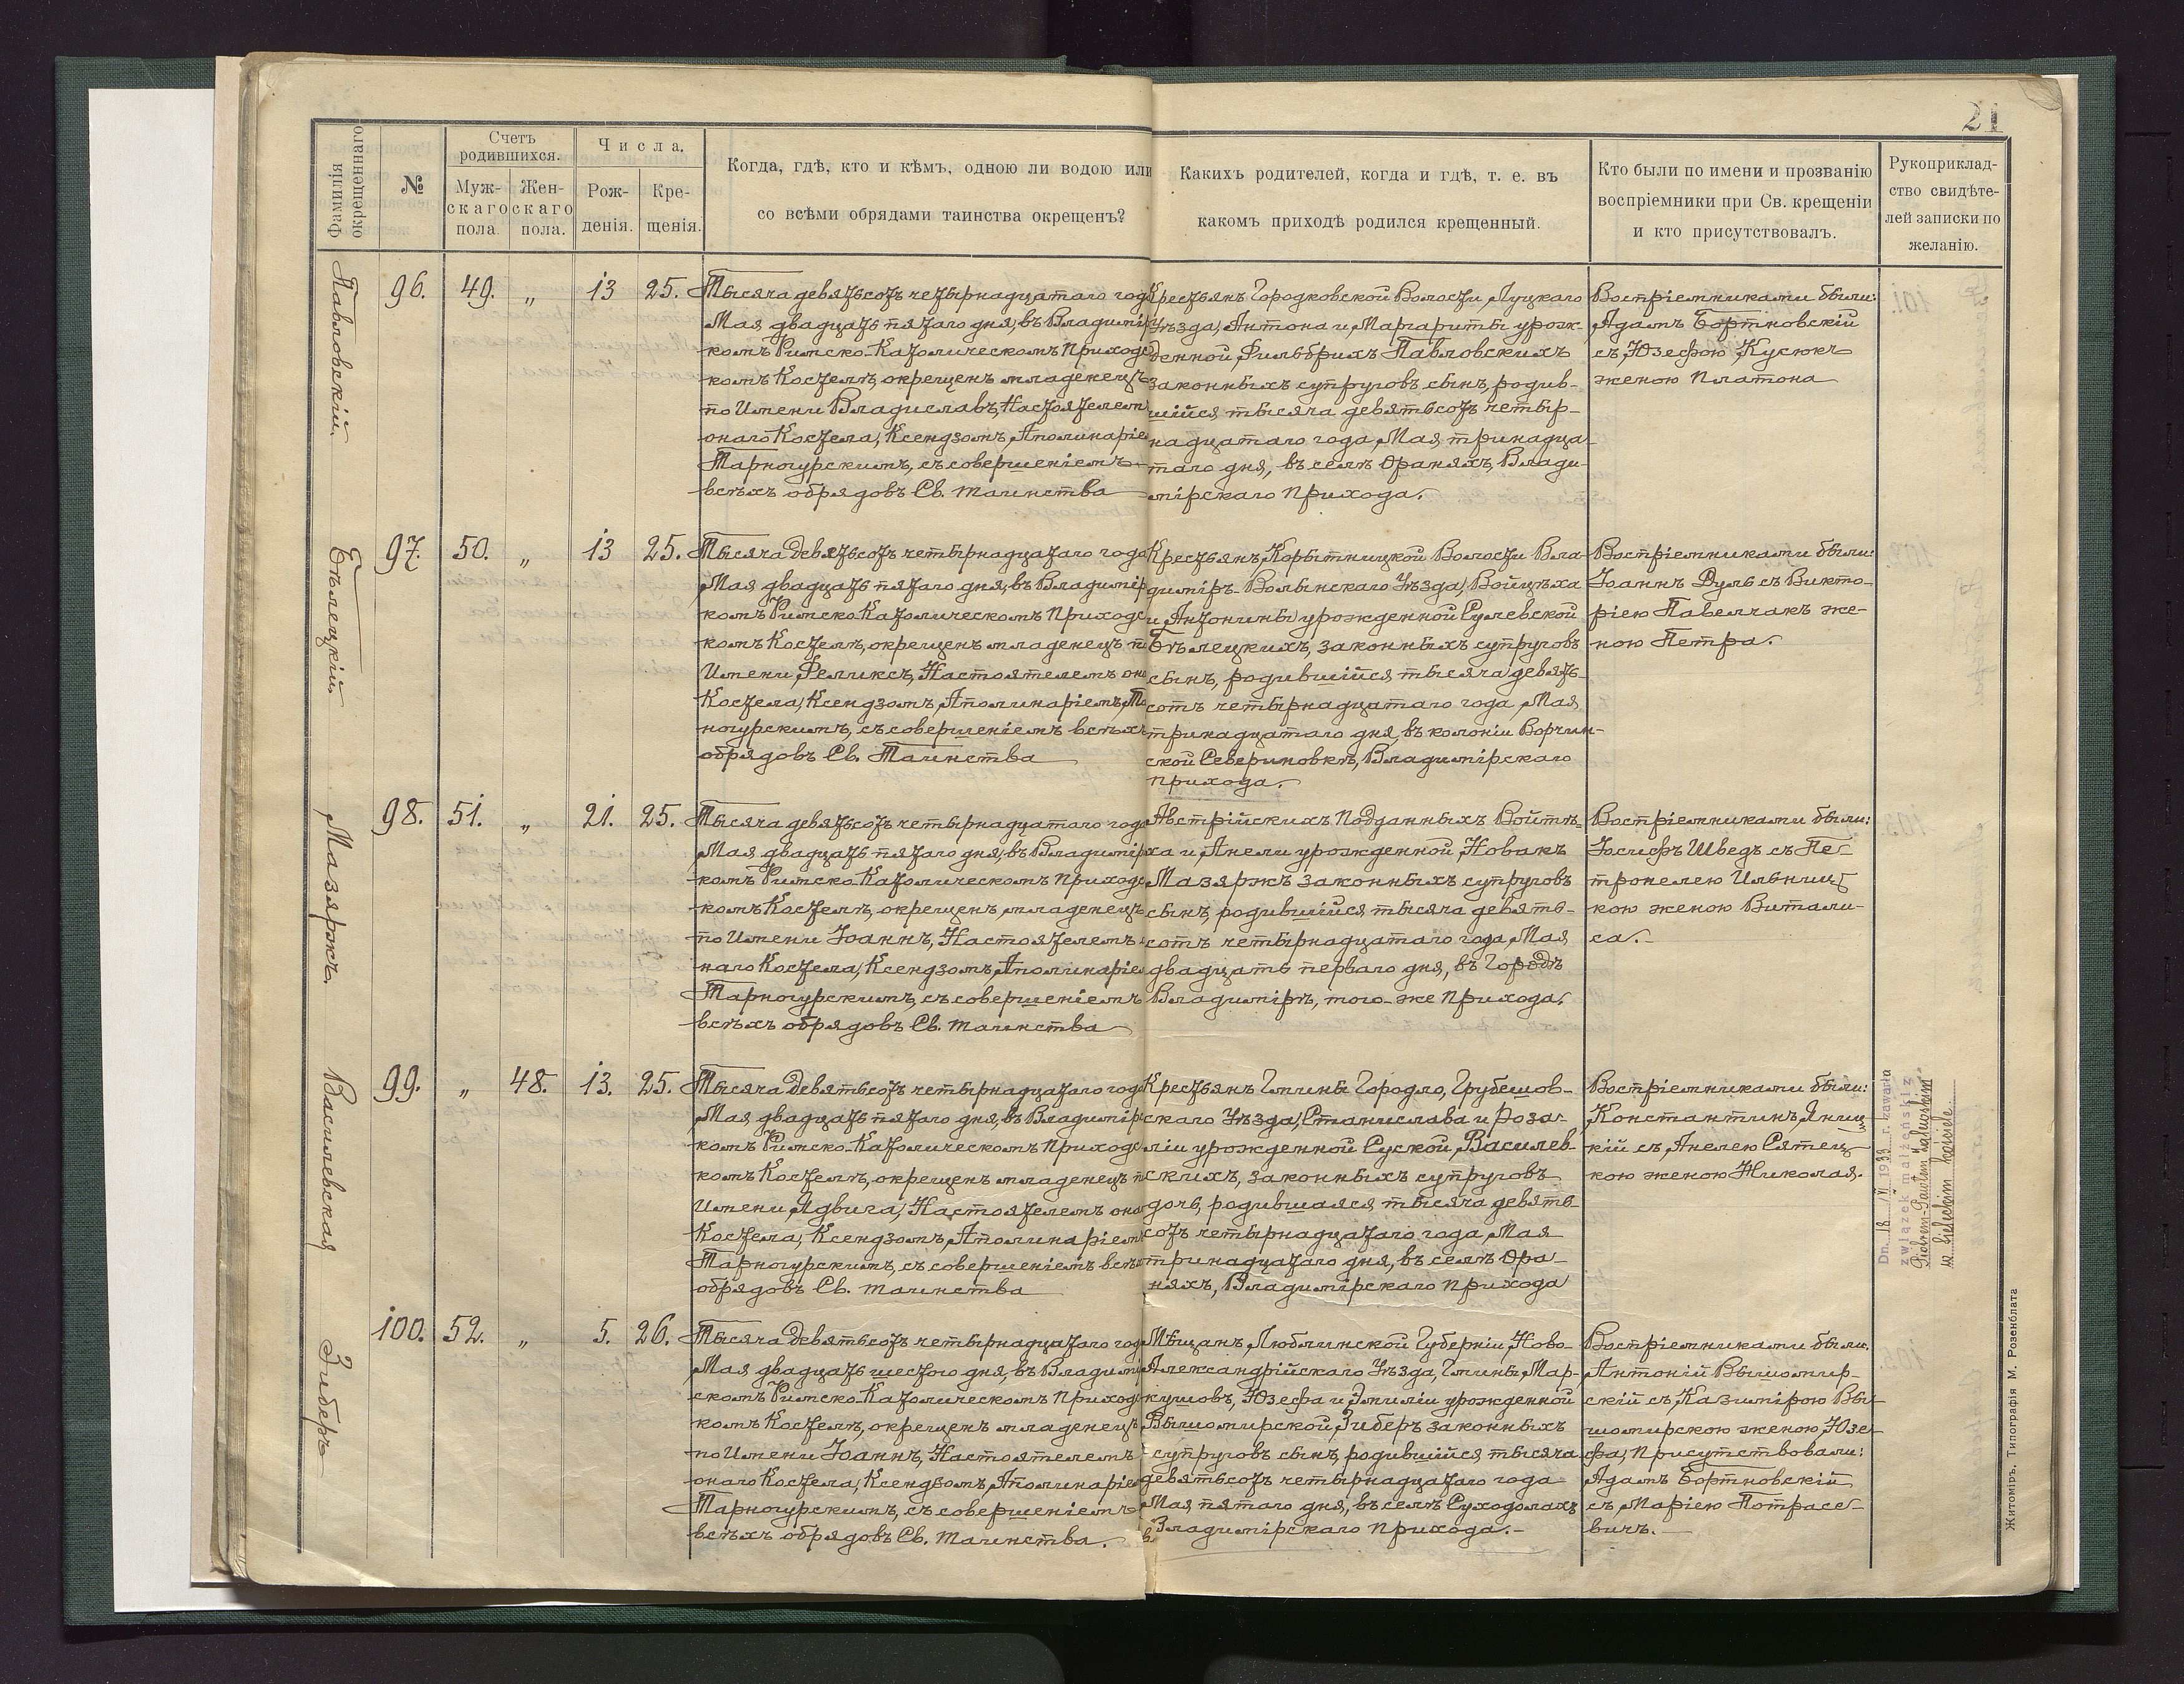 21
Фамилія
окрещеннаго
№
Счетъ
родившихся.
Муж-
скаго
пола.
Жен-
скаго
пола.
Числа.
Рож-
денія.
Кре-
щенія.
Когда, гдѣ, кто и кѣмъ, одною ли водою или
со всѣми обрядами таинства окрещенъ?
Какихъ родителей, когда и гдѣ, т. е. въ
какомъ приходѣ родился крещенный.
Кто были по имени и прозванію
воспріемники при Св. крещеніи
и кто присутствовалъ.
Рукоприклад-
ство свидѣте-
лей записки по
желанію.
Павловскій.
96.
49.
„
13
25.
Тысяча девятьсотъ четырнадцатаго год
Мая двадцать пятаго дня, въ Владимір
комъ Римско-Католическомъ Приходс
комъ Костелѣ, окрещенъ младенецъ
по Имени Владиславъ, Настоятелем
онаго Костела, Ксендзомъ, Аполинаріе
Тарногурскимъ, съ совершеніемъ
всѣхъ обрядовъ Св. таинства
Крестьянъ Городковской Волости Луцкаго
Уѣзда, Антона и Маргариты урож-
денной Фильбрихъ Павловскихъ
законныхъ супруговъ сынъ, родив-
шійся тысяча девятьсотъ четыр-
надцатаго года, Мая тринадца-
таго дня, въ селѣ Ораняхъ, Влади-
мірскаго Прихода.
Воспріемниками были:
Адамъ Бортновскій
съ Юзефою Кусюкъ
женою Платона
Бѣлецкій.
97.
50.
„
13
25.
Тысяча девятьсотъ четырнадцатаго года
Мая двадцать пятаго дня, въ Владимір
комъ Римско-Католическомъ Приходс
комъ Костелѣ, окрещенъ младенецъ п
Имени Феликсъ, Настоятелемъ она
Костела, Ксендзомъ, Аполинаріемъ, Та
ногурскимъ, съ совершеніемъ всѣхъ
обрядовъ Св. Таинства
Крестьянъ, Корытницкой Волости Вла-
диміръ-Волынскаго Уѣзда, Войцѣха
и Антонины урожденной Сулевской
Бѣлецкихъ, законныхъ супруговъ
сынъ, родившійся тысяча девять-
сотъ четырнадцатаго года, Мая
тринадцатаго дня, въ колоніи Ворчин-
ской Севериновкѣ, Владимірскаго
прихода.
Воспріемниками были:
Іоаннъ Дуль съ Викто-
ріею Павелчакъ же-
ною Петра.
Мазяржъ.
98.
51.
„
21.
25.
Тысяча девятьсотъ четырнадцатаго года
Мая двадцать пятаго дня, въ Владимір
комъ Римско-Католическомъ Приходс
комъ Костелѣ, окрещенъ младенецъ
по Имени Іоаннъ, Настоятелемъ о
наго Костела, Ксендзомъ, Аполинаріе
Тарногурскимъ, съ совершеніемъ
всѣхъ обрядовъ Св. таинства
Австрійскихъ Подданныхъ Войтѣ-
ха и Анели урожденной Новакъ
Мазяржъ законныхъ супруговъ
сынъ, родившійся тысяча девять-
сотъ четырнадцатаго года, Мая
двадцать перваго дня, въ Городѣ
Владимірѣ, того-же Прихода.
Воспріемниками были:
Іосифъ Шведъ съ Пе-
тронелею Ильниц-
кою женою Витали-
са.-
Василевская
99.
„
48.
13.
25.
Тысяча девятьсотъ четырнадцатаго год
Мая двадцать пятаго дня, въ Владимір
комъ Римско-Католическомъ Приходс
комъ Костелѣ, окрещенъ младенецъ п
Имени, Ядвига, Настоятелемъ она
Костела, Ксендзомъ, Аполинаріем
Тарногурскимъ, съ совершеніемъ всѣх
обрядовъ Св. таинства
Крестьянъ Гмины Городло, Грубешов-
скаго Уѣзда, Станислава и Роза-
ліи урожденной Суской, Василев-
скихъ, законныхъ супруговъ
дочь, родившаяся тысяча девять-
сотъ четырнадцатаго года, Мая
тринадцатаго дня, въ селѣ Ора-
няхъ, Владимірскаго Прихода
Воспріемниками были:
Константинъ Яниц-
кій съ Анелею Сятец-
кою женою Николая.
Dn. 18/VI 1933 r. zawarła
związek małżeński z
Piotrem-Pawłem
w kościele
Зиберъ
100.
52.
„
5.
26.
Тысяча девятьсотъ четырнадцатаго год
Мая двадцать шестого дня, въ Владими
скомъ Римско-Католическомъ Приходс
комъ Костелѣ, окрещенъ младенецъ
по Имени Іоаннъ, Настоятелемъ
онаго Костела, Ксендзомъ, Аполинаріе
Тарногурскимъ, съ совершеніемъ
всѣхъ обрядовъ Св. таинства.
Мѣщанъ, Люблинской Губерніи, Ново-
Александрійскаго Уѣзда, Гмины Мар-
кушовъ, Юзефа и Эмиліи урожденной
Вышомирской, Зиберъ законныхъ
супруговъ сынъ, родившійся тысяча
девятьсотъ четырнадцатаго года
Мая пятаго дня, въ селѣ Суходолахъ
Владимірскаго Прихода.-
Воспріемниками были,
Антоній Вышомир-
скій съ Казимірою Вы-
шомирскою женою Юзе-
фа, Присутствовали:
Адамъ Бортновскій
съ Маріею Потрасе-
вичъ.-
Житоміръ, Типографія М. Розенблата